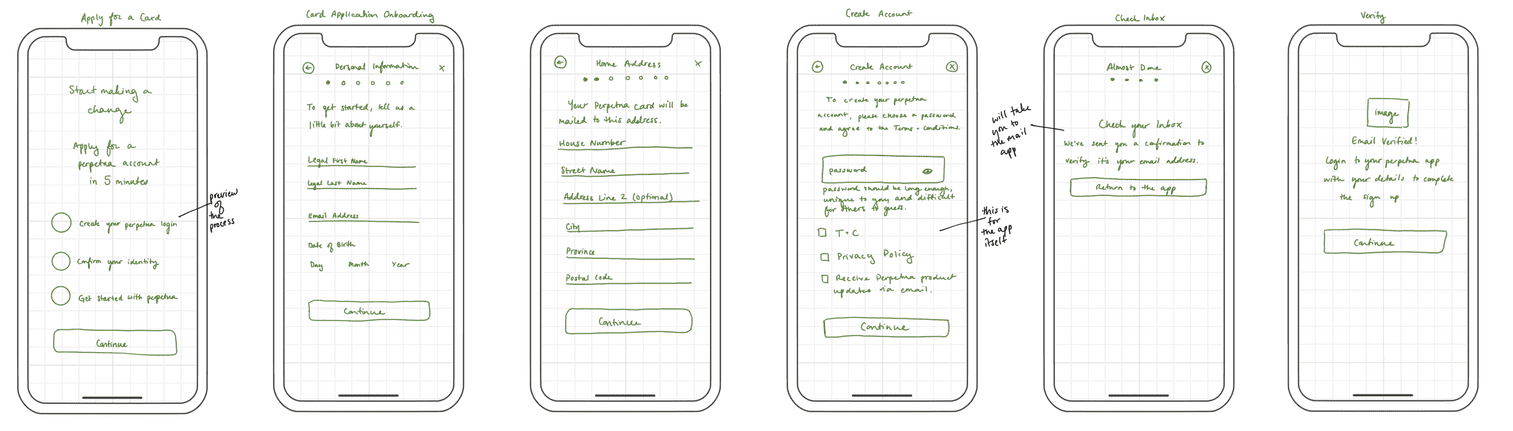 Apply for a Card
Start making a
change
Apply for a
perpetua account
in 5 minutes
Create your perpetua login
Confirm your identity
Get started with perpetua
Continue
preview
of
the
process
Card Application Onboarding
Personal Information
To get started, tell us a
little bit about yourself.
Legal First Name
Legal Last Name
Email Address
Date of Birth
Day Month Year
Continue
Home Address
Your Perpetua Card will be
mailed to this address.
House Number
Street Name
Address Line 2 (optional)
City
Province
Postal Code
Continue
Create Account
Create Account
To create your perpetua
account, please choose a password
and agree to the Terms + Conditions.
password
password should be long enough,
unique to you and difficult
for others to guess.
T+C
Privacy Policy
Receive Perpetua product
updates via email.
Continue
this is
for
the app
itself
will take
you to
the mail
app
Check Inbox
Almost Done
Check your Inbox
We've sent you a confirmation to
verify it's your email address.
Return to the app
Verify
Image
Email Verified!
Login to your perpetua app
with your details to complete
the sign up
Continue